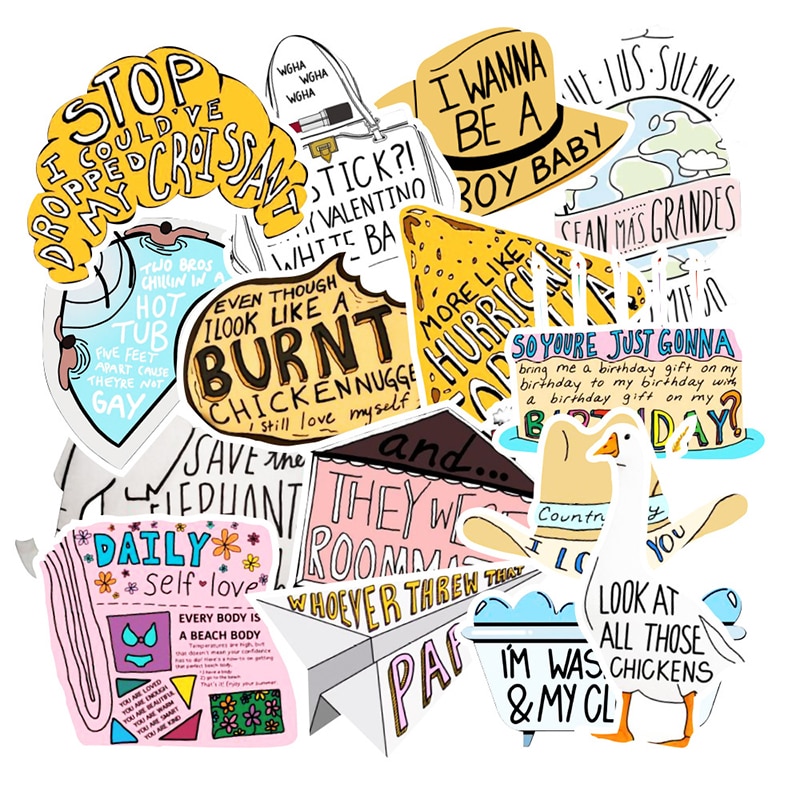 STOP
I COULD'VE
DROPPED
MY CROISSANT
WGHA
WGHA
WGHA
STICK?!
VALENTINO
WHITE BA
I WANNA
BE A
BOY BABY
TUS SUEÑO
SEAN MÁS GRANDES
TWO BROS
CHILLIN IN A
HOT
TUB
FIVE FEET
APART CAUSE
THEYRE NOT
GAY
EVEN THOUGH
I LOOK LIKE A
BURNT
CHICKEN NUGGE
I still love myself
MORE LIKE
HURRICANE
SO YOURE JUST GONNA
bring me a birthday gift on my
birthday to my birthday with
a birthday gift on my
BIRTHDAY?
SAVE the
ELEPHANT
and...
THEY WE
ROOMMA
Country
I LO YOU
DAILY
self love
EVERY BODY IS
A BEACH BODY
Temperatures are high, but
that doesn't mean your confidence
has to be! Here's a how-to on getting
that perfect beach body.
1) have a body
2) go to the beach
That's it! Enjoy your summer.
YOU ARE LOVED
YOU ARE ENOUGH
YOU ARE BEAUTIFUL
YOU ARE WARM
YOU ARE SMART
YOU ARE KIND
WHOEVER THREW THAT
PAP
I'M WAS
& MY CL
LOOK AT
ALL THOSE
CHICKENS